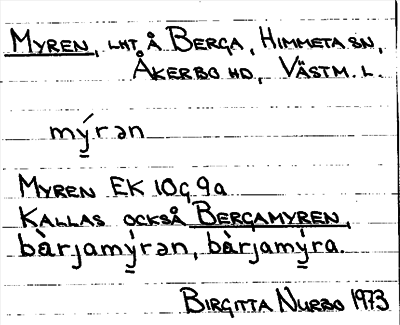 MYREN, LHT Å BERGA, HIMMETA SN,
ÅKERBO HD, VÄSTM. L.
mý̱rən
MYREN EK 10G9a
KALLAS OCKSÅ BERGAMYREN,
bàrjamý̱rən, bàrjamý̱ra.
BIRGITTA NURBO 1973